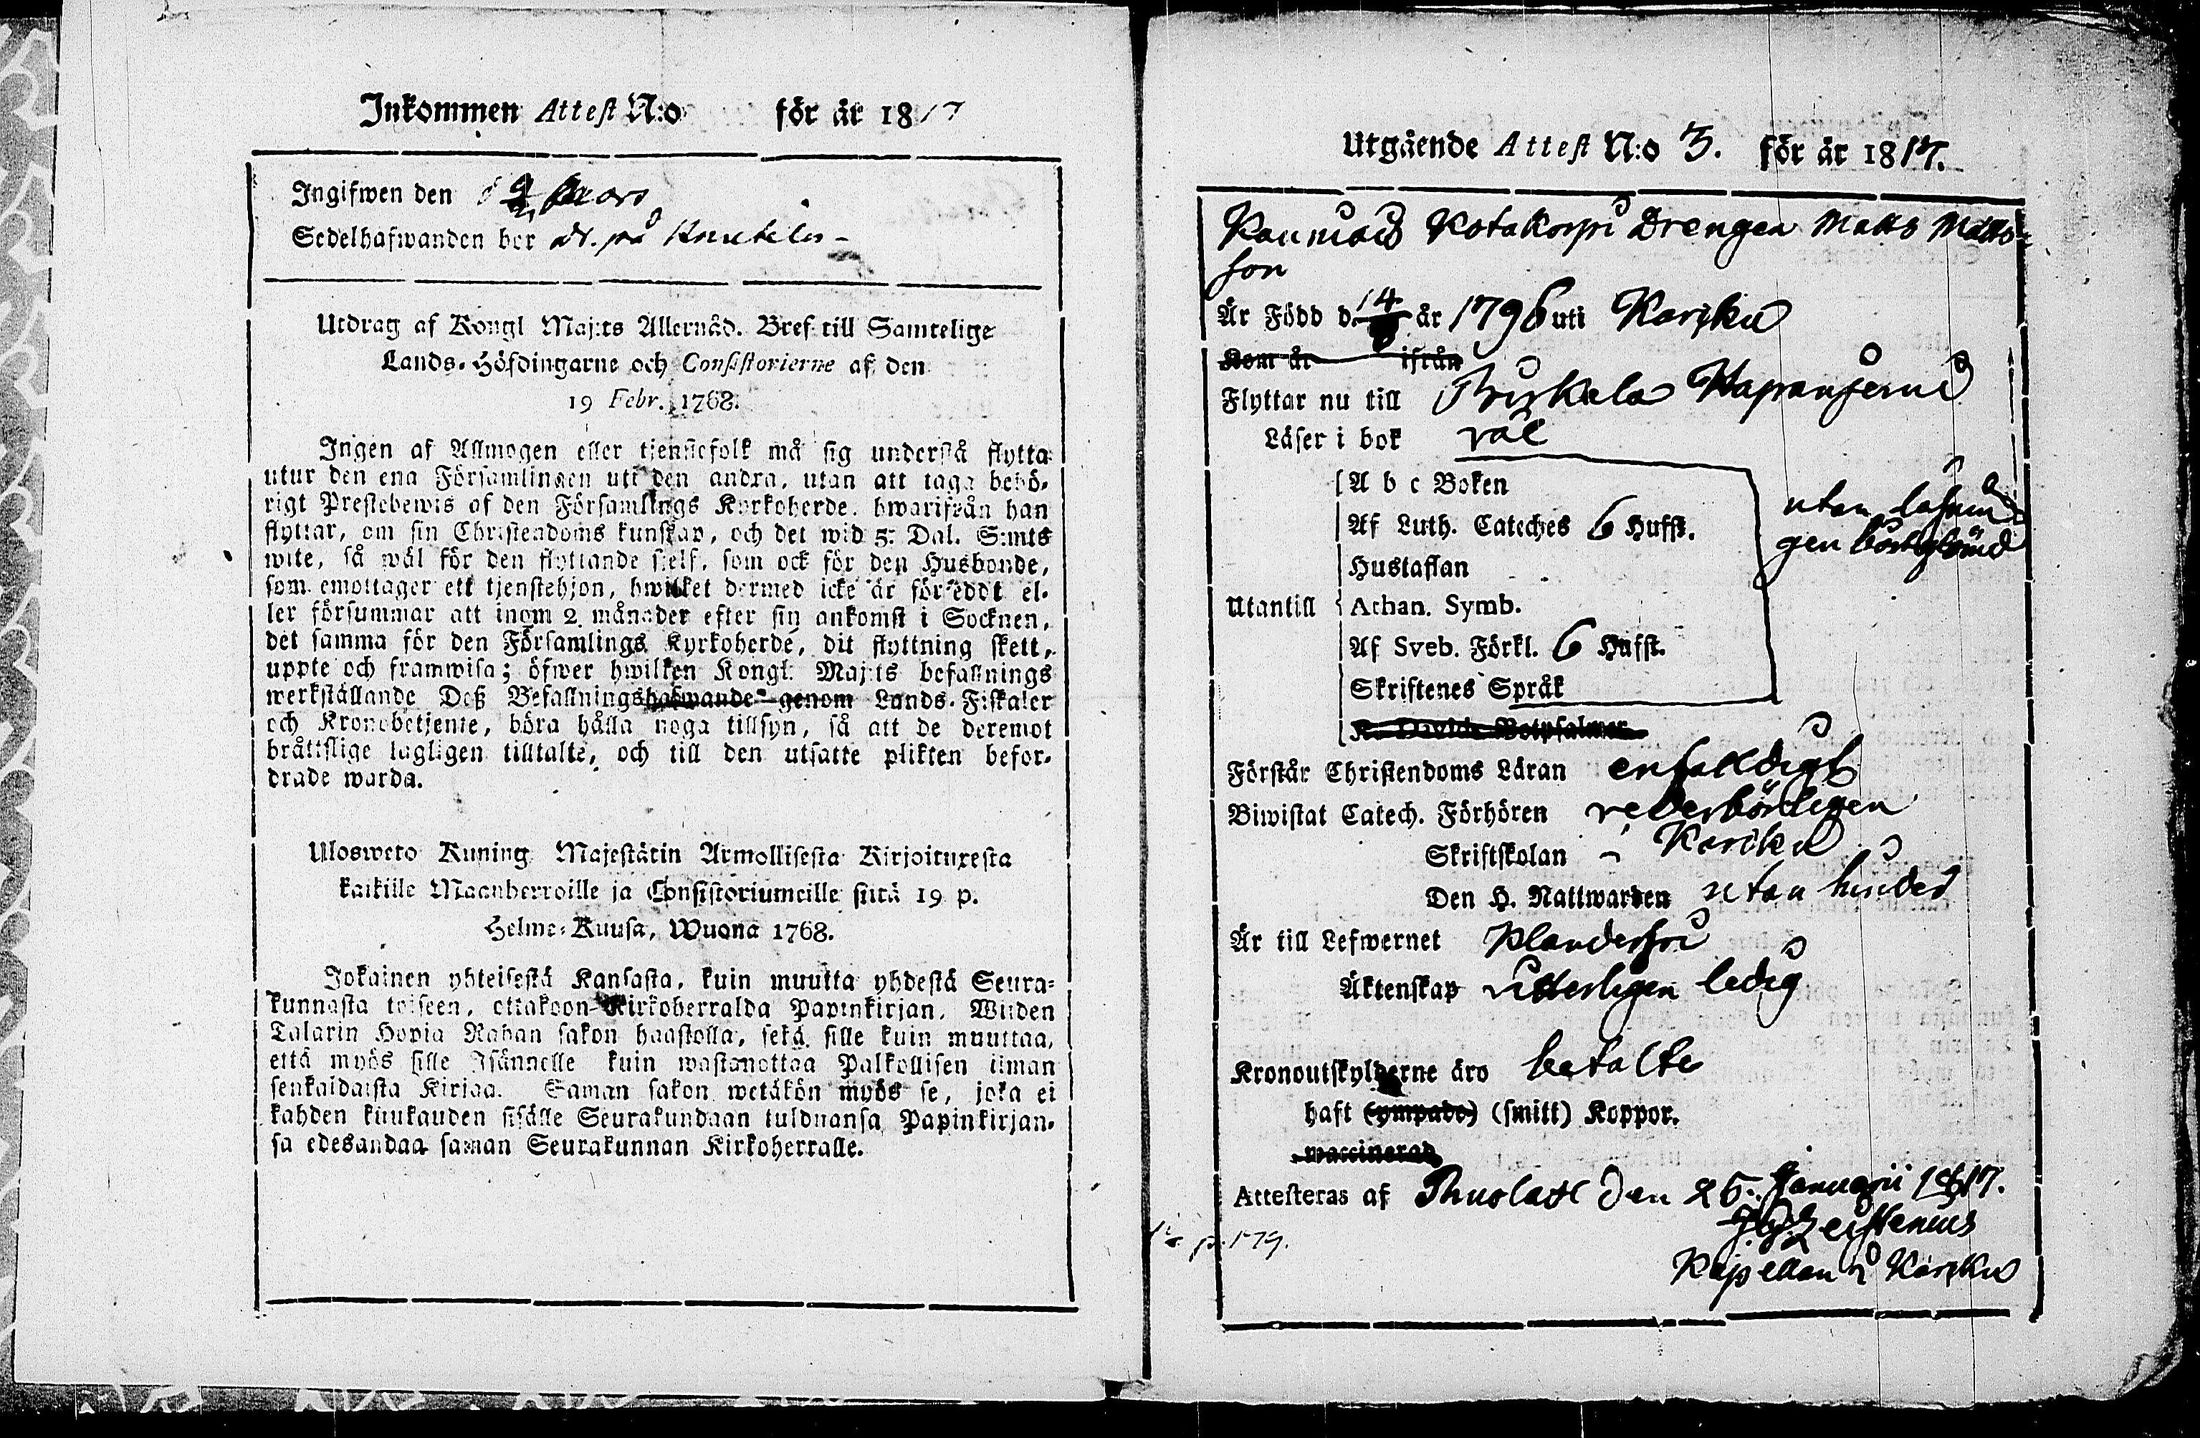 Inkommen Attest N:o för år 1817
Ingifwen den Mars
Sedelhafwanden bor dr. på Knutila
Utdrag af Kongl Maj:ts Allernåd. Bref till Samtelige
Lands-Höfdingarne och Consistorierne af den
19 Febr. 1768.
Ingen af Allmogen eller tjenstefolk må sig understå flytta
utur den ena Församlingen uti den andra, utan att taga behö-
rigt Prestebewis af den Församlings Kyrkoherde, hwarifrån han
flyttar, om sin Christendoms kunskap, och det wid 5: Dal. S:mts
wite, så wäl för den flyttande sjelf, som ock för den Husbonde,
som emottager ett tjenstehjon, hwilket dermed icke är försedt el-
ler försummar att inom 2. månader efter sin ankomst i Socknen,
det samma för den Församlings Kyrkoherde, dit flyttning skett,
uppte och framwisa; öfwer hwilken Kongl. Maj:ts befallnings
werkställande Deß Befallningshafwande genom Lands-Fiskaler
och Kronobetjente, böra hålla noga tillsyn, så att de deremot
bråttslige lagligen tilltalte, och till den utsatte plikten befor-
drade warda.
Ulosweto Kuning. Majestätin Armollisesta Kirjoituxesta
kaikille Maanherroille ja Consistoriumeille siitä 19 p.
Helme-Kuusa, Wuona 1768.
Jokainen yhteisestä Kansasta, kuin muutta yhdestä Seura-
kunnasta toiseen, ottakoon Kirkoherralda Papinkirjan, Wiiden
Talarin Hopia Rahan sakon haastolla, sekä sille kuin muuttaa,
että myös sille Isännelle kuin wastanottaa Palkollisen ilman
senkaldaista Kirjaa. Saman sakon wetäkön myös se, joka ei
kahden kuukauden sisälle Seurakundaan tulduansa Papinkirjan-
sa edesandaa saman Seurakunnan Kirkoherralle.
Utgående Attest N:o 3. för år 1817.
Kauniais Kotakorpi Drengen Matts Matts-
son
Är Född d. 14 år 1796 uti Karkku
Kom år ifrån
Flyttar nu till Birkala Haparjerwi
Läser i bok väl
A b c Boken
Af Luth. Cateches 6 Hufst.
utan läsnin
gen
Hustaflan
Utantill Athan. Symb.
Af Sveb. Förkl. 6 Hufst.
Skriftenes Språk
K. Davids Botpsalmer
Förstår Christendoms Läran enfaldigt
Biwistat Catech. Förhören vederbörligen
Skriftskolan i Karcku
Den H. Nattwarden utan hinder
Är till Lefwernet Klanderfri
Äktenskap vitterligen ledig
Kronoutskylderne äro betalte
haft (ympade) (smitt) Koppor.
waccinerad
Attesteras af den 25. Januarii 1817.
p. 179.
Kapellan i Karkku